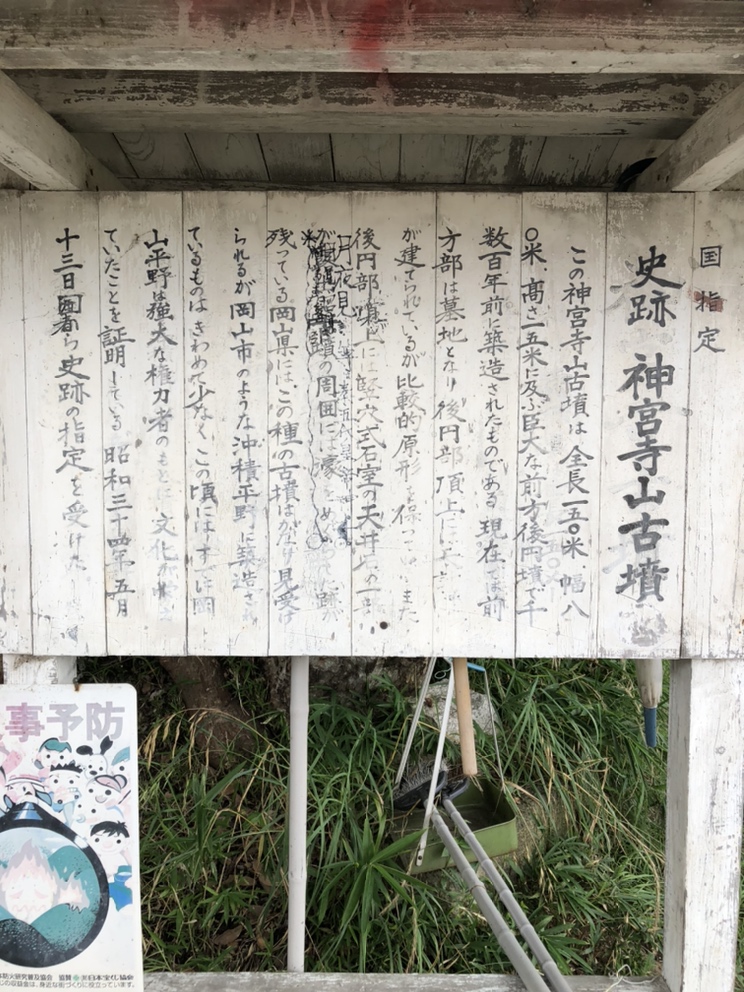 国指定
史跡 神宮寺山古墳
この神宮寺山古墳は全長一五〇米、幅八
〇米、高さ一五米に及ぶ巨大な前方後円墳で千
数百年前に築造されたものである 現在では前
方部は墓地となり後円部頂上には
が建てられているが比較的原形を保って また
後円部墳上には竪穴式石室の天井石の一部
の周囲には濠をめぐらした跡
残っている岡山県にはこの種の古墳はかなり見受け
られるが岡山市のような沖積平野に築造され
ているものはきわめて少なくこの頃にはすでに岡
山平野は強大な権力者のもとに文化が
ていたことを証明している 昭和三十四年五月
十三日国から史跡の指定を受けた
事予防
日本宝くじ協会